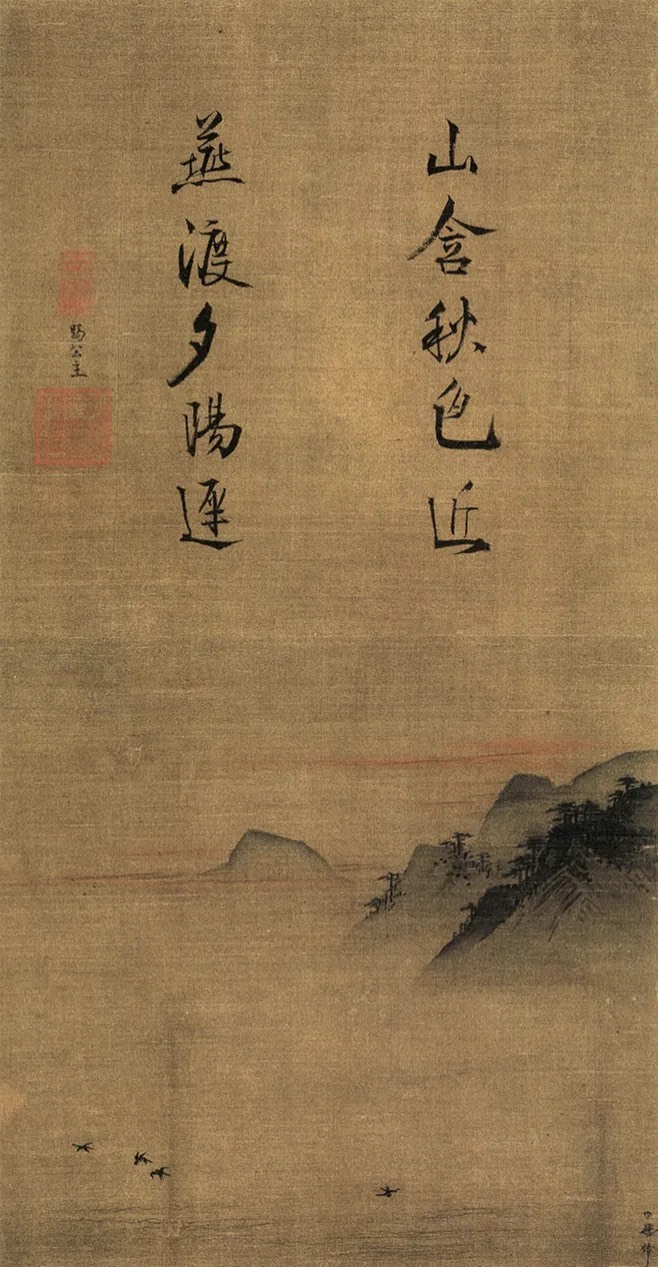 山含秋色近
燕渡夕陽遲
賜公主
臣馬麟